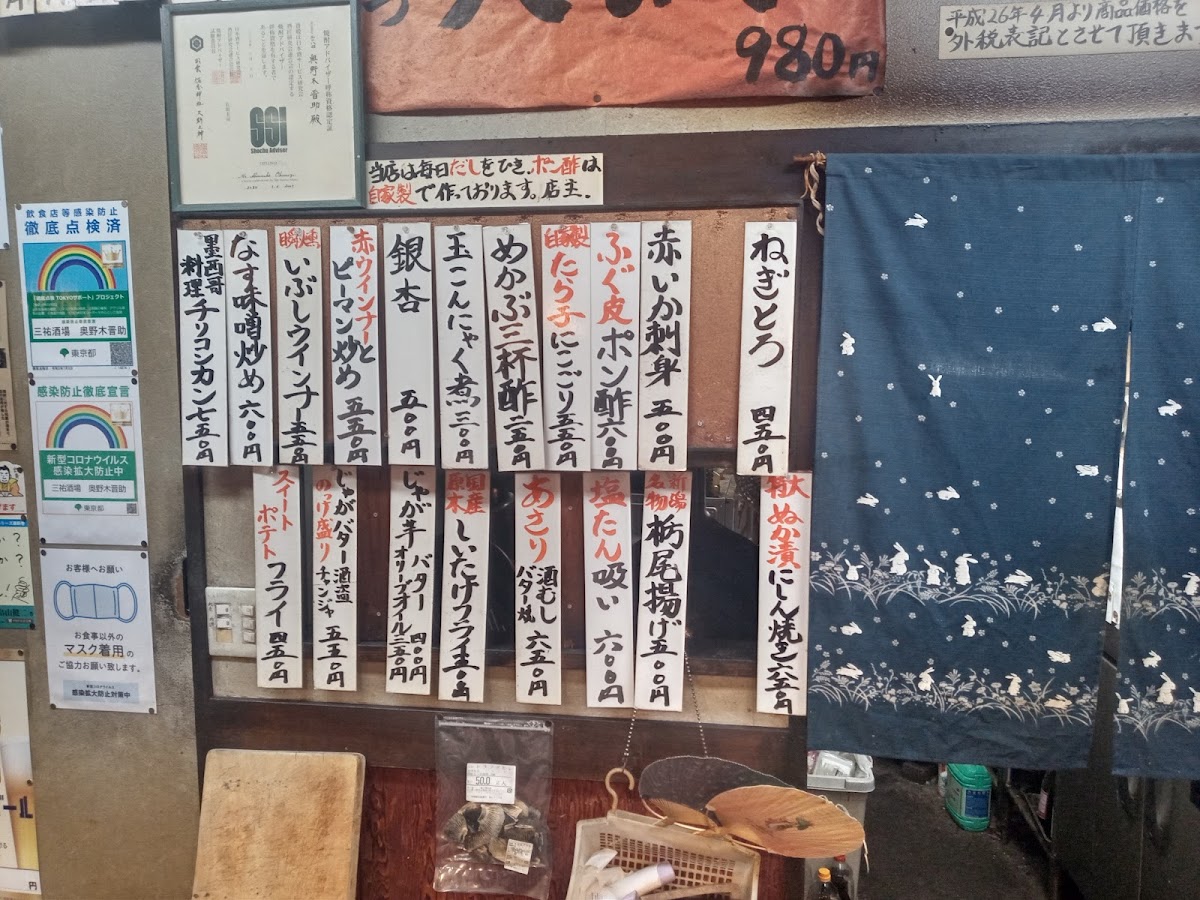 980円
平成26年4月より商品価格を
外税表記とさせて頂きます
焼酎アドバイザー呼称資格認定証
奥野木晋助 殿
SSI
Shochu Adviser
当店は毎日だしをひき、ポン酢は
自家製で作っております。店主.
ねぎとろ 四五〇円
赤いか刺身 五〇〇円
ふぐ皮ポン酢 六〇〇円
自家製 たら子にこごり 五五〇円
めかぶ三杯酢 三五〇円
玉こんにゃく煮 三〇〇円
銀杏 五〇〇円
赤ウインナーと
ピーマン炒め 五五〇円
瞬燻 いぶしウインナー 五五〇円
なす味噌炒め 六〇〇円
墨西哥
料理 チリコンカン 七五〇円
特大 ぬか漬にしん焼
新潟
名物 栃尾揚げ 五〇〇円
塩たん吸い 六〇〇円
あさり 酒むし
バター焼 六五〇円
国産
原木 しいたけフライ 五五〇円
じゃが芋 バター 四〇〇円
オリーブオイル 三五〇円
じゃがバター酒盗
のっけ盛り チャンジャ 五五〇円
スイート
ポテト フライ 四五〇円
飲食店等感染防止
徹底点検済
「徹底点検 TOKYOサポート」プロジェクト
三祐酒場 奥野木晋助
東京都
感染防止徹底宣言
新型コロナウイルス
感染拡大防止中
三祐酒場 奥野木晋助
東京都
お客様へお願い
お食事以外の
マスク着用の
ご協力お願い致します。
新型コロナウイルス
感染拡大防止対策中
円